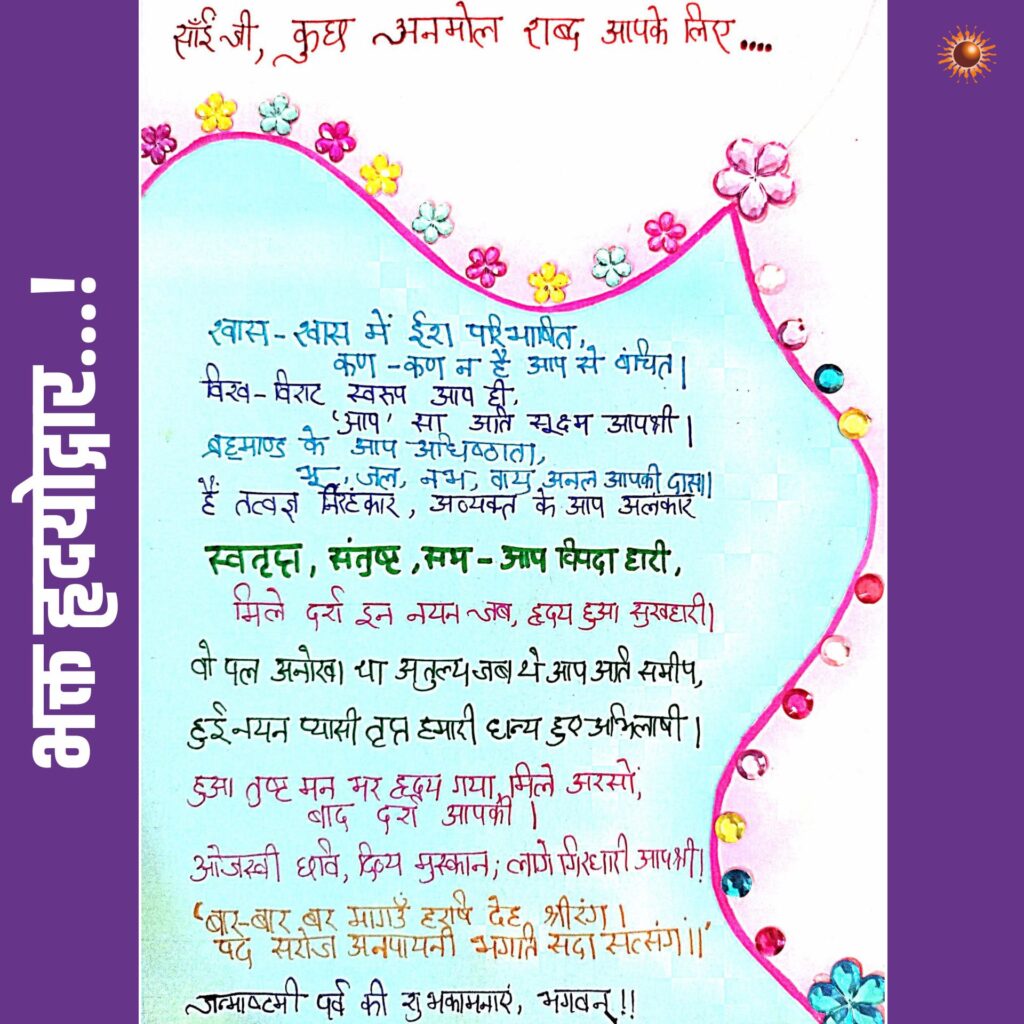 भक्त हृदयोद्गार...!
साँई जी, कुछ अनमोल शब्द आपके लिए....
श्वास-श्वास में ईश परिभाषित,
कण-कण न है आप से वंचित।
विश्व-विराट स्वरूप आप ही,
'आप' सा अति सूक्ष्म आपश्री।
ब्रह्माण्ड के आप अधिष्ठाता,
भू, जल, नभ, वायु, अनल आपकी दासा।
हैं तत्वज्ञ निरहंकार, अव्यक्त के आप अलंकार
स्वतृप्त, संतुष्ट, सम-आप विपदा हारी,
मिले दर्श इन नयन जब, हृदय हुआ सुखहारी।
वो पल अनोखा था अतुल्य जब थे आप अति समीप,
हुई नयन प्यासी तृप्त हमारी धन्य हुए अभिलाषी।
हुआ तुष्ट मन भर हृदय गया, मिले अरसों,
बाद दर्श आपकी।
ओजस्वी छवि, दिव्य मुस्कान; लागे गिरधारी आपश्री!
'बार-बार बर मागउँ हरषि देहु श्रीरंग।
पद सरोज अनपायनी भगति सदा सत्संग।।'
जन्माष्टमी पर्व की शुभकामनाएं, भगवन्!!